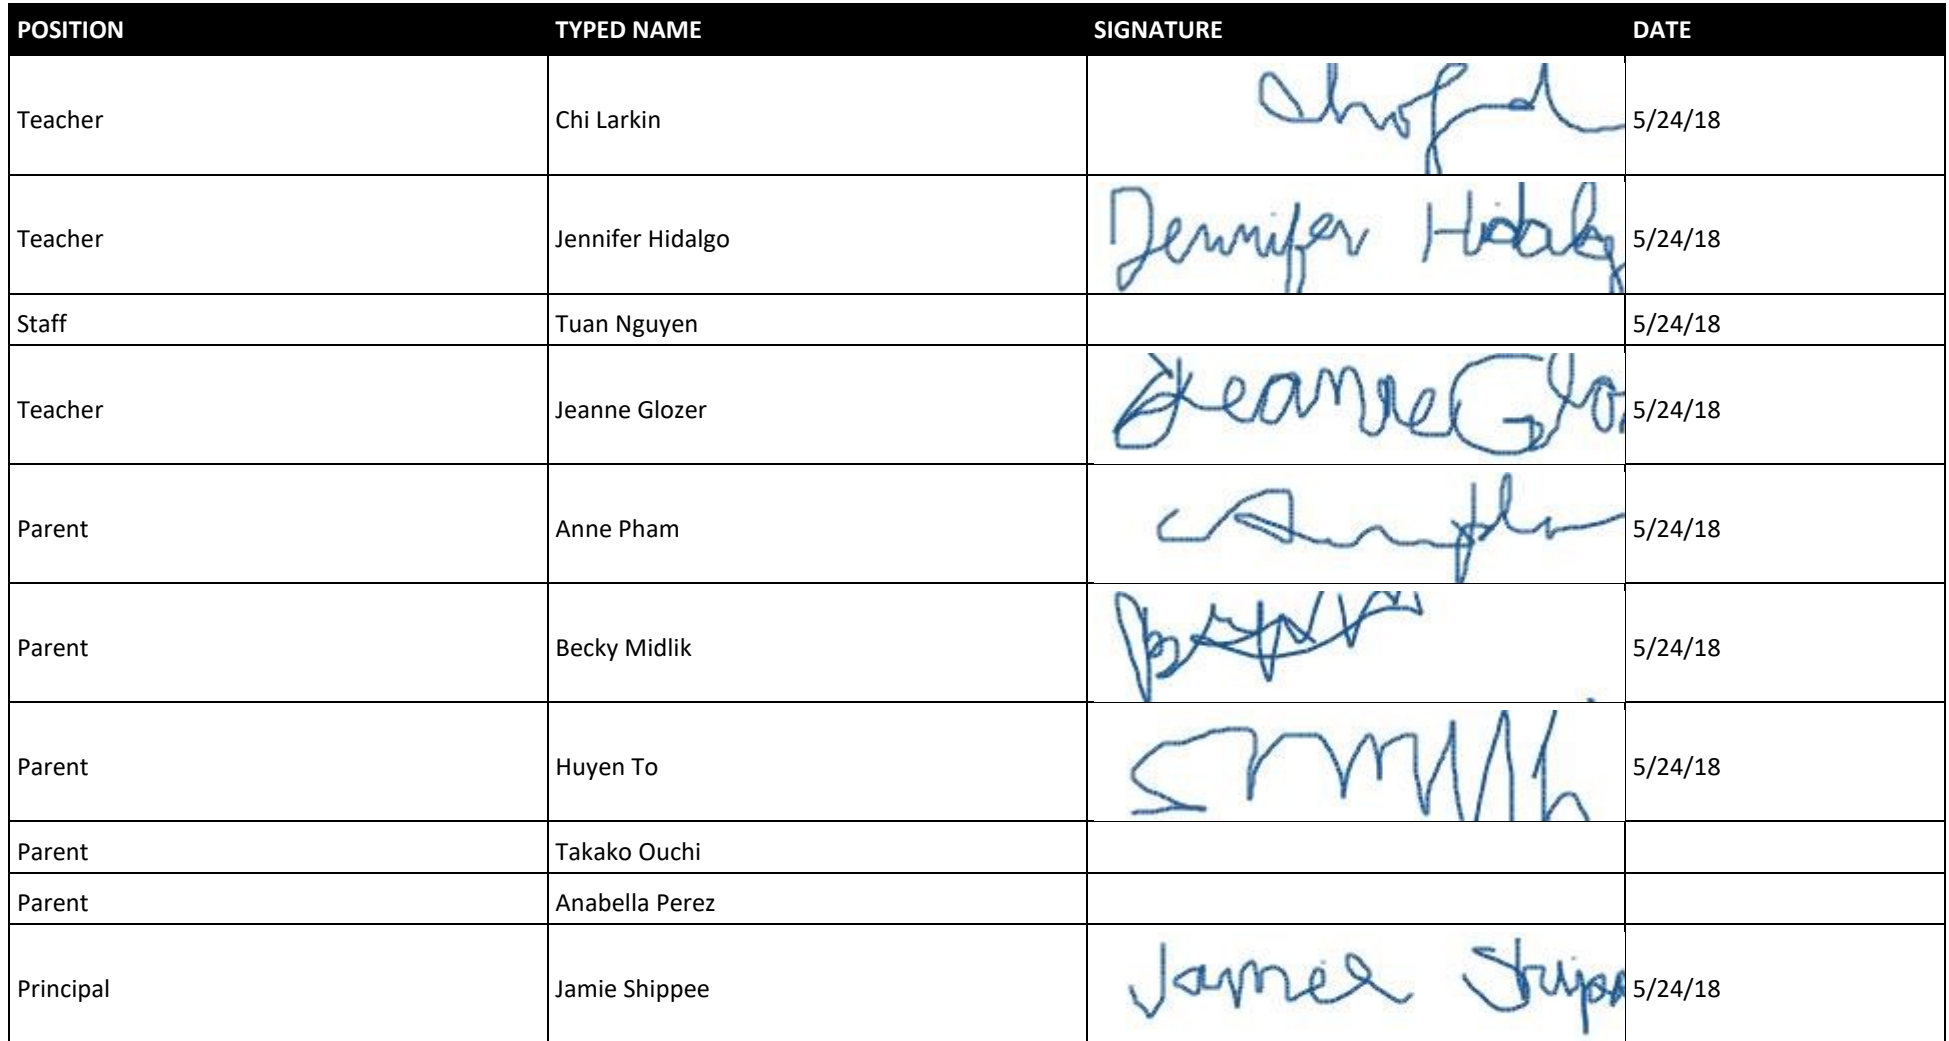 POSITION TYPED NAME SIGNATURE DATE
Teacher Chi Larkin 5/24/18
Teacher Jennifer Hidalgo Jennifer Hidalg 5/24/18
Staff Tuan Nguyen 5/24/18
Teacher Jeanne Glozer Jeanne Gloz 5/24/18
Parent Anne Pham 5/24/18
Parent Becky Midlik 5/24/18
Parent Huyen To 5/24/18
Parent Takako Ouchi
Parent Anabella Perez
Principal Jamie Shippee Jamie Shipp 5/24/18